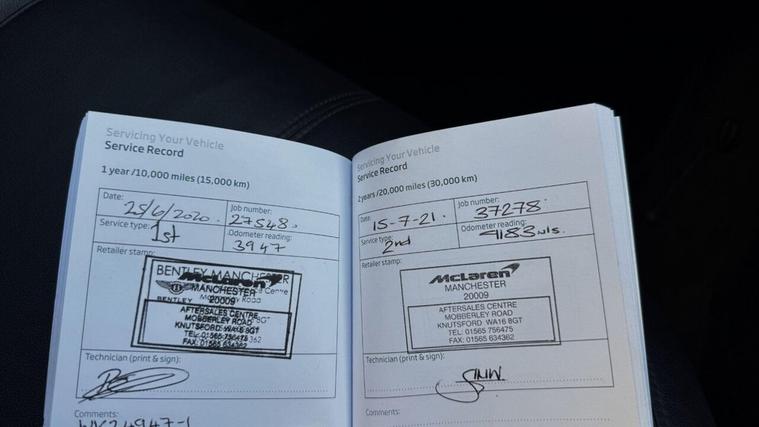 Servicing Your Vehicle
Service Record
1 year /10,000 miles (15,000 km)
Date: 25/6/2020.
Job number: 27548.
Service type: 1st
Odometer reading: 3947
Retailer stamp:
BENTLEY MANCHESTER
McLaren
MANCHESTER
20009
BENTLEY
AFTERSALES CENTRE
MOBBERLEY ROAD
KNUTSFORD WA16 8GT
TEL: 01565 756475
FAX: 01565 634362
Technician (print & sign):
Comments:
Servicing Your Vehicle
Service Record
2 years /20,000 miles (30,000 km)
Date: 15-7-21.
Job number: 37278.
Service type: 2nd
Odometer reading: 9183 mls.
Retailer stamp:
McLaren
MANCHESTER
20009
AFTERSALES CENTRE
MOBBERLEY ROAD
KNUTSFORD WA16 8GT
TEL: 01565 756475
FAX: 01565 634362
Technician (print & sign):
Comments: